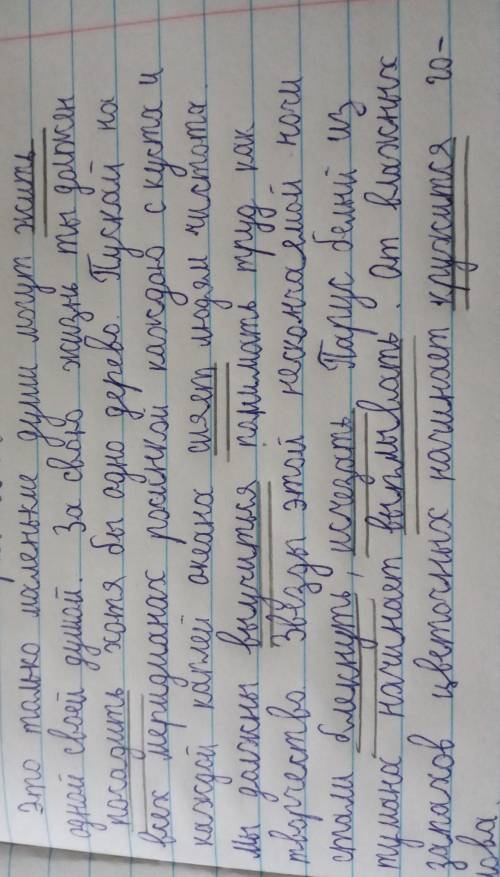 Это только маленькие души могут жить
одной своей душой. За свою жизнь ты должен
посадить хотя бы одно дерево. Пускай на
всех меридианах росинкой каждою с куста и
каждой каплей океана сияет людям чистота.
Мы должны внучиться понимать труд как
творчество Звёзды этой нескончаемой ночи
стали блекнуть, исчезать Парус белый из
тумана начинает выплывать. От влажных
запахов цветочных начинает кружится го-
лова